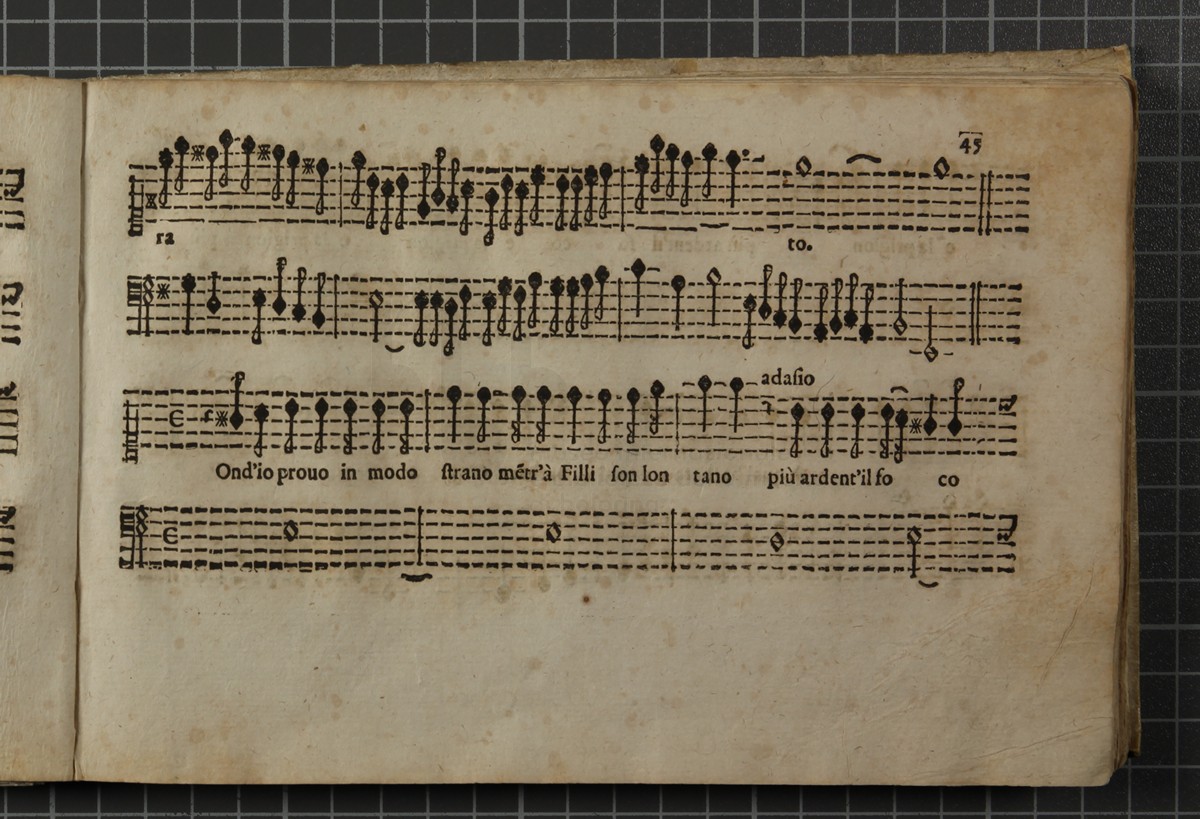 45
ra to.
adasio
Ond'io prouo in modo ſtrano mẽtr'à Filli ſon lon tano più ardent'il fo co